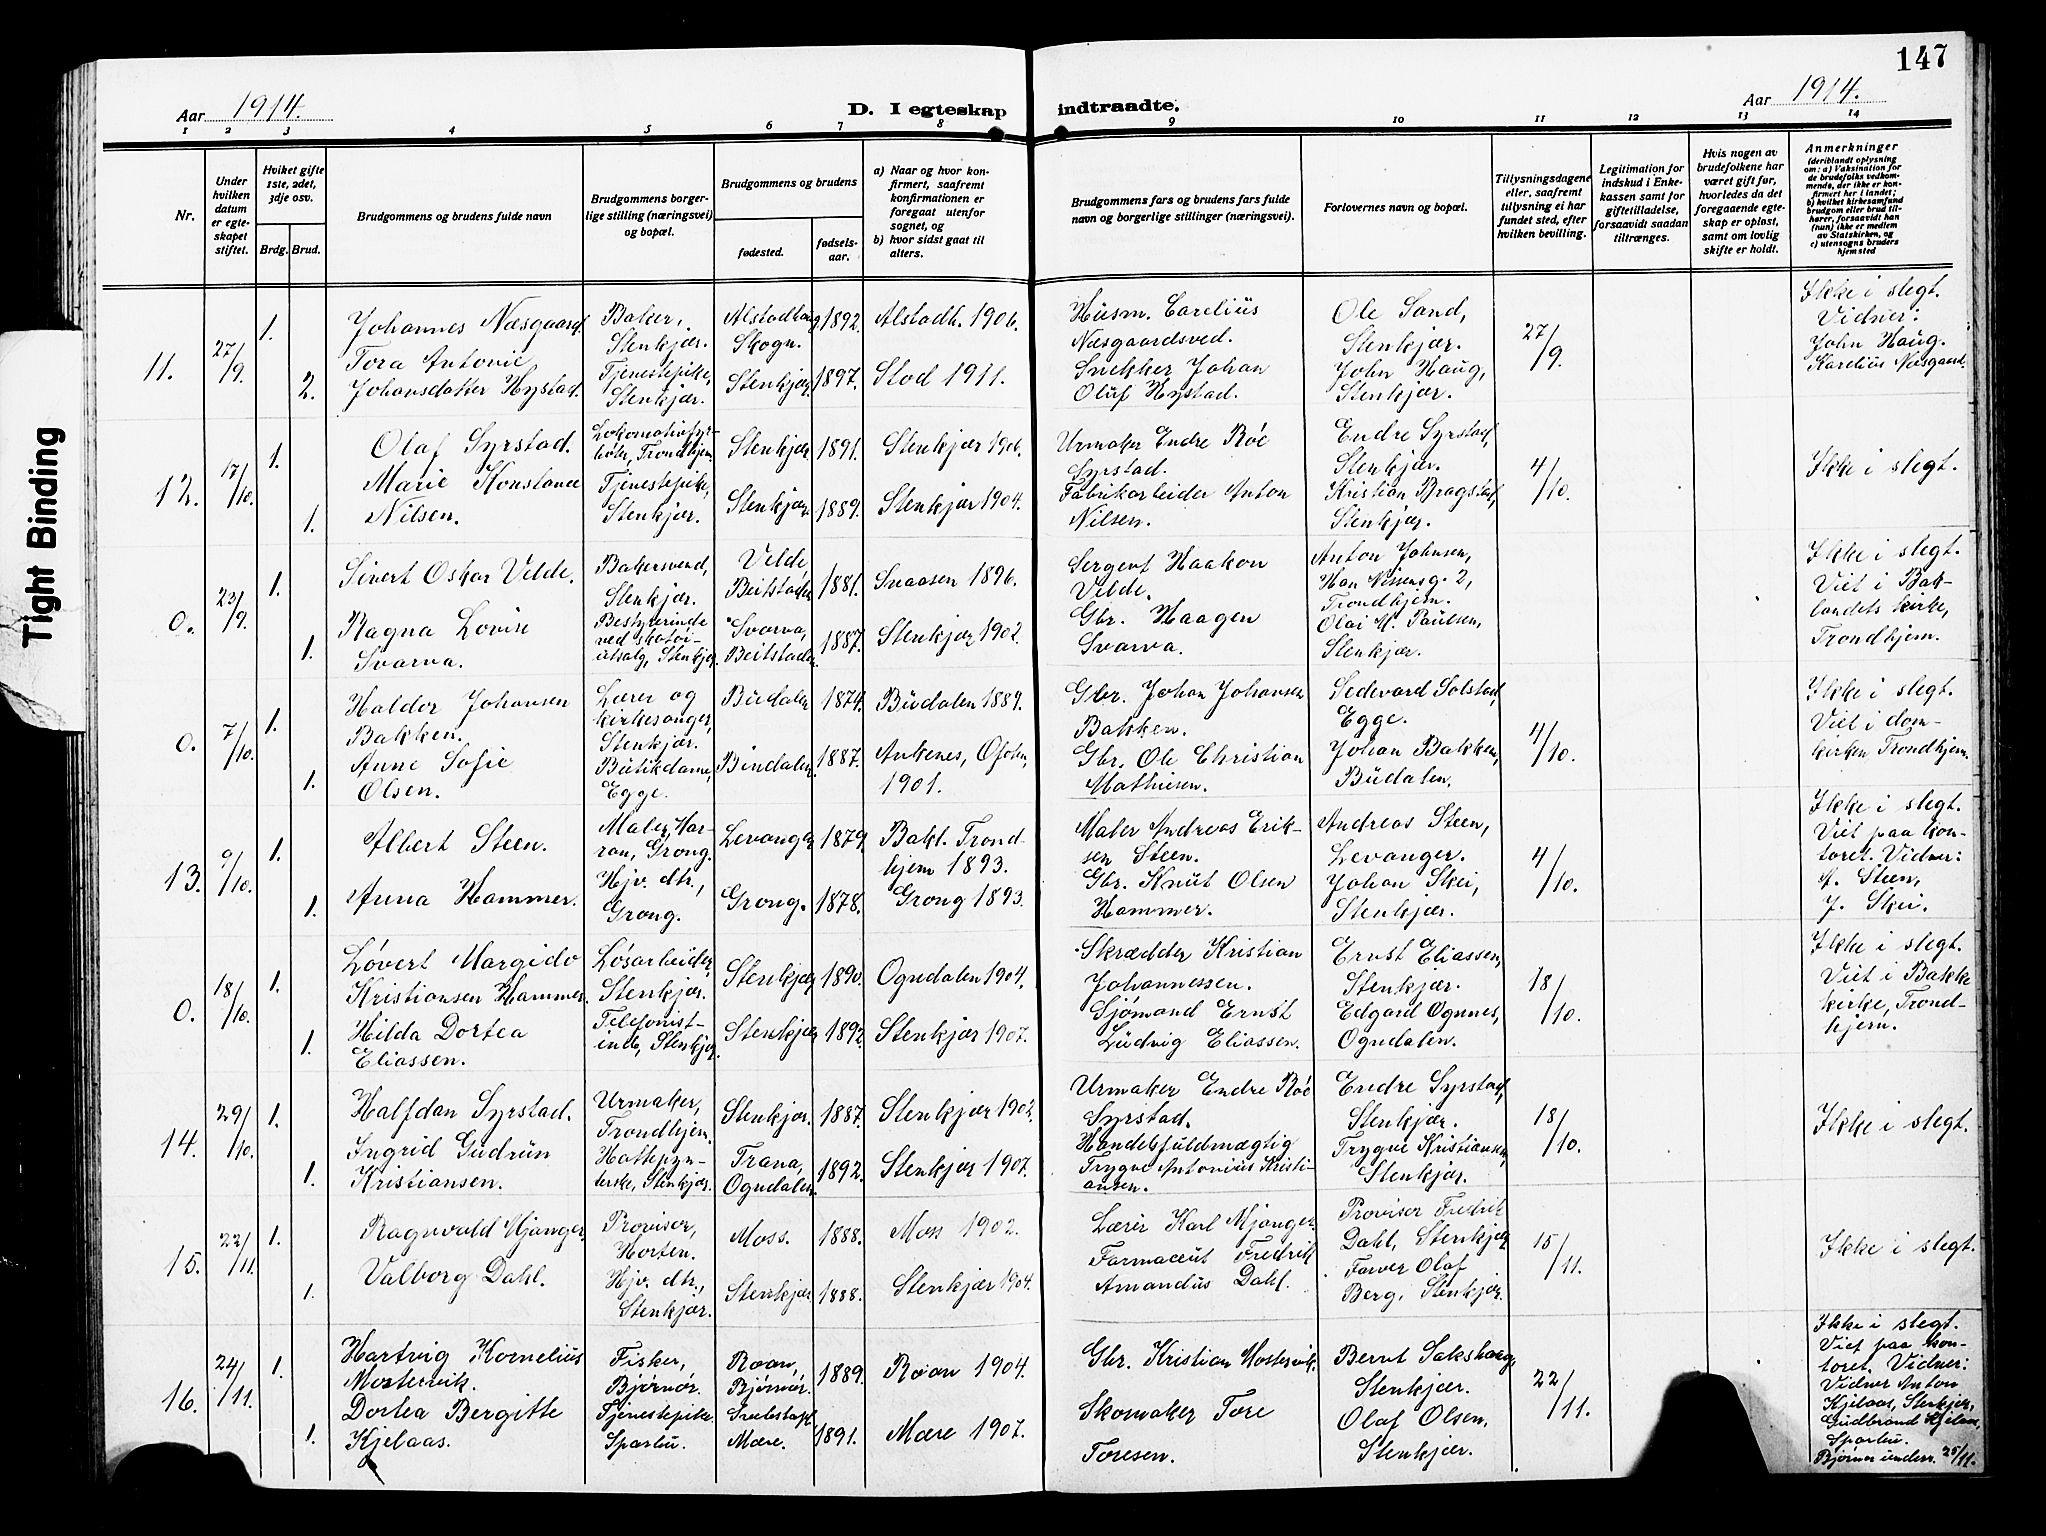 147
Aar 1914.
D. I egteskap indtraadte.
Aar 1914.
1 2 3 4 5 6 7 8 9 10 11 12 13 14
Nr.
Under hvilken datum er egteskapet stiftet.
Hvilket gifte 1ste, 2det, 3dje osv.
Brdg. Brud.
Brudgommens og brudens fulde navn
Brudgommens borgerlige stilling (næringsvei) og bopæl.
Brudgommens og brudens
fødested.
fødselsaar.
a) Naar og hvor konfirmert, saafremt konfirmationen er foregaat utenfor sognet, og
b) hvor sidst gaat til alters.
Brudgommens fars og brudens fars fulde navn og borgerlige stillinger (næringsvei).
Forlovernes navn og bopæl.
Tillysningsdagene eller, saafremt tillysning ei har fundet sted, efter hvilken bevilling.
Legitimation for indskud i Enkekassen samt for giftetilladelse, forsaavidt saadan tiltrænges.
Hvis nogen av brudefolkene har været gift før, hvorledes da det foregaaende egteskap er opløst, samt om lovlig skifte er holdt.
Anmerkninger
(deriblandt oplysning om: a) Vaksination for de brudefolks vedkommende, der ikke er konfirmert her i landet; b) hvilket kirkesamfund brudgom eller brud tilhører, forsaavidt han (hun) ikke er medlem av Statskirken, og c) utensogns bruders hjemsted
11. 27/9. 1. Johannes Næsgaard. Baker, Stenkjær. Alstadhaug Skogn. 1892. Alstadh. 1906. Husm. Carelius Næsgaardsved. Ole Sand, Stenkjær. 27/9. Ikke i slegt. Vidner: John Haug. Karelius Næsgaard.
2. Tora Antonie Johansdatter Hystad. Tjenestepike, Stenkjær. Stenkjær 1897. Stod 1911. Snekker Johan Oluf Hystad. John Haug, Stenkjær.
12. 17/10. 1. Olaf Syrstad. Lokomotivfyrbøter, Trondhjem. Stenkjær 1891. Stenkjær 1906. Urmaker Endre Roe Syrstad. Endre Syrstad, Stenkjær. 4/10. Ikke i slegt.
1. Marie Konstance Nilsen. Tjenestepike, Stenkjær. Stenkjær 1889. Stenkjær 1904. Fabrikarbeider Anton Nilsen. Kristian Bragstad, Stenkjær.
0. 23/9. 1. Sivert Oskar Velde. Bakersvend, Stenkjær. Velde Beitstaden 1881. Snaasen 1896. Sergent Haakon Velde. Anton Johnsen, Han Nissensg. 2, Trondhjem. Ikke i slegt. Viet i Baklandets kirke, Trondhjem.
1. Ragna Lovise Svarva. Bestyrerinde ved skotøiutsalg, Stenkjær. Svarva, Beitstaden 1887. Stenkjær 1902. Gbr. Haagen Svarva. Olai M. Paulsen, Stenkjær.
0. 7/10. 1. Haldor Johansen Bakken. Lærer og kirkesanger, Stenkjær. Budalen 1874. Budalen 1889. Gbr. Johan Johansen Bakken. Sedevard Solstad, Egge. 4/10. Ikke i slegt. Viet i domkirken Trondhjem.
1. Anne Sofie Olsen. Butikdame, Egge. Bindalen 1887. Ankenes, Ofoten, 1901. Gbr. Ole Christian Mathisen. Johan Bakken, Budalen.
13. 9/10. 1. Albert Steen. Maler, Harran, Grong. Levanger 1879. Bakl. Trondhjem 1893. Maler Andreas Eriksen Steen. Andreas Steen, Levanger. 4/10. Ikke i slegt. Viet paa kontoret. Vidner: A. Steen, J. Skei.
1. Anna Hammer. Hjv. dtr., Grong. Grong. 1878. Grong 1893. Gbr. Knut Olsen Hammer. Johan Skei, Stenkjær.
0. 18/10. 1. Løvert Margido Kristiansen Hammer. Løsarbeider, Stenkjær. Stenkjær 1890. Ogndalen 1904. Skrædder Kristian Johannessen. Ernst Eliassen, Stenkjær. 18/10. Ikke i slegt. Viet i Bakke kirke, Trondhjem.
1. Hilda Dortea Eliassen. Telefonistinde, Stenkjær. Stenkjær 1892. Stenkjær 1907. Sjømand Ernst Ludvig Eliassen. Edgard Ognnes, Ogndalen.
14. 29/10. 1. Halfdan Syrstad. Urmaker, Trondhjem. Stenkjær. 1887. Stenkjær 1902. Urmaker Endre Roe Syrstad. Endre Syrstad, Stenkjær. 18/10. Ikke i slegt.
1. Ingrid Gudrun Kristiansen. Hattepynterske, Stenkjær. Trana, Ogndalen. 1892. Stenkjær 1907. Handelsfuldmægtig Trygve Antonius Kristiansen. Trygve Kristiansen, Stenkjær.
15. 22/11. 1. Ragnvald Mjanger. Provisor, Horten. Moss. 1888. Moss 1902. Lærer Karl Mjanger. Provisor Fredrik Dahl, Stenkjær 15/11. Ikke i slegt.
1. Valborg Dahl. Hjv. dtr., Stenkjær. Stenkjær 1888. Stenkjær 1904. Farmaceut Fredrik Amandus Dahl. Farver Olaf Berg, Stenkjær.
16. 24/11. 1. Hartvig Kornelius Mostervik. Fisker, Bjørnør. Roan, Bjørnør. 1889. Roan 1904. Gbr. Kristian Mostervik. Bernt Sakshaug, Stenkjær. 22/11. Ikke i slegt. Viet paa kontoret, Vidner: Vidner Anton Kjelaas, Stenkjær, Gudbrand Kjelaas, Sparbu. Bjørnør underr. 25/11.
1. Dortea Bergitte Kjelaas. Tjenestepike. Sparbu. Mære. 1891. Mære 1907. Skomaker Tore Toresen. Olaf Olsen, Stenkjær.
Tight Binding